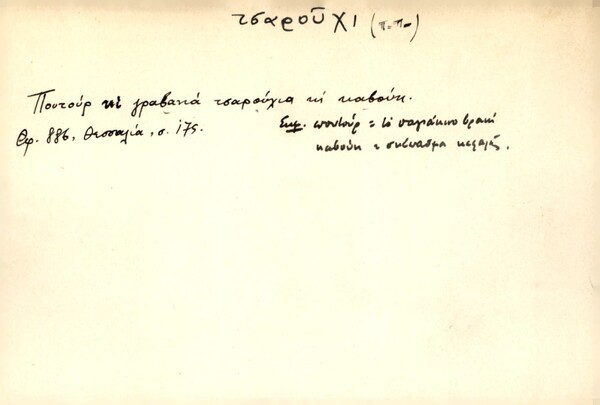 τσαροῦχι (π.π.)
Ποτούρ κὶ γραβανιά τσαρούχια κὶ καβούκι.
Θρ. 886, Θεσσαλία, σ. 175.
Σημ. ποτούρ = τὸ βρακί
καβούκι = σκέπασμα κεφαλῆς.